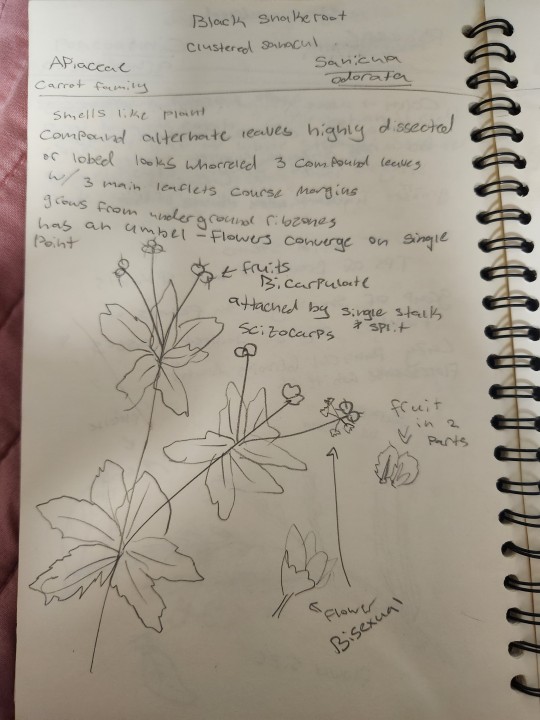 Black snakeroot
Clustered sanacul
Apiaceae
Sanicula
odorata
Carrot family
smells like plant
compound alternate leaves highly dissected
or lobed looks whorreled 3 compound leaves
w/ 3 main leaflets course margins
grows from underground ribzones
has an umbel - flowers converge on single
Point
← fruits
Bicarpulate
attached by single stalk
Scizocarps * split
fruit
in 2
parts
← flower
Bisexual